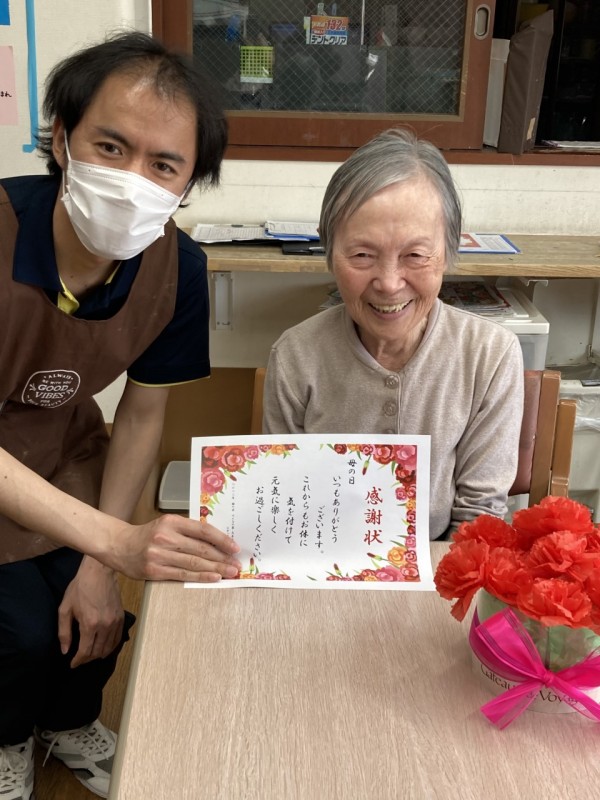 感謝状
母の日
いつもありがとう
ございます。
これからもお体に
気を付けて
元気に楽しく
お過ごしください。
ALWAYS
GOOD
VIBES